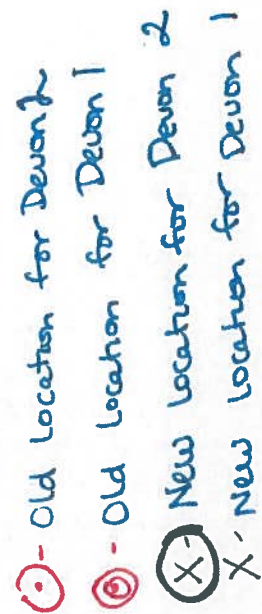 - Old Location for Devon 2
- Old Location for Devon 1
X - New Location for Devon 2
X - New Location for Devon 1